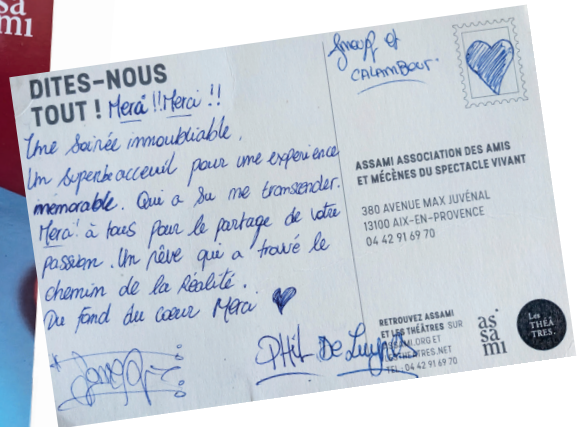 as
sa
mi
DITES-NOUS
TOUT ! Merci !! Merci !!
Une Soirée innoubliable.
Un superbe acceuil pour une experience
mémorable. Qui a Su me transender.
Merci! à tous pour le partage de votre
passion. Un rêve qui a trouvé le
chemin de la Réalité.
Du fond du cœur Merci
PHil De Luynes
et
CALAMBOUR.
ASSAMI ASSOCIATION DES AMIS
ET MÉCÈNES DU SPECTACLE VIVANT
380 AVENUE MAX JUVÉNAL
13100 AIX-EN-PROVENCE
04 42 91 69 70
RETROUVEZ ASSAMI
ET LES THÉÂTRES SUR
ASSAMI.ORG ET
LESTHEATRES.NET
TEL : 04 42 91 69 70
as
sa
mi
Les
THÉÂ
TRES.